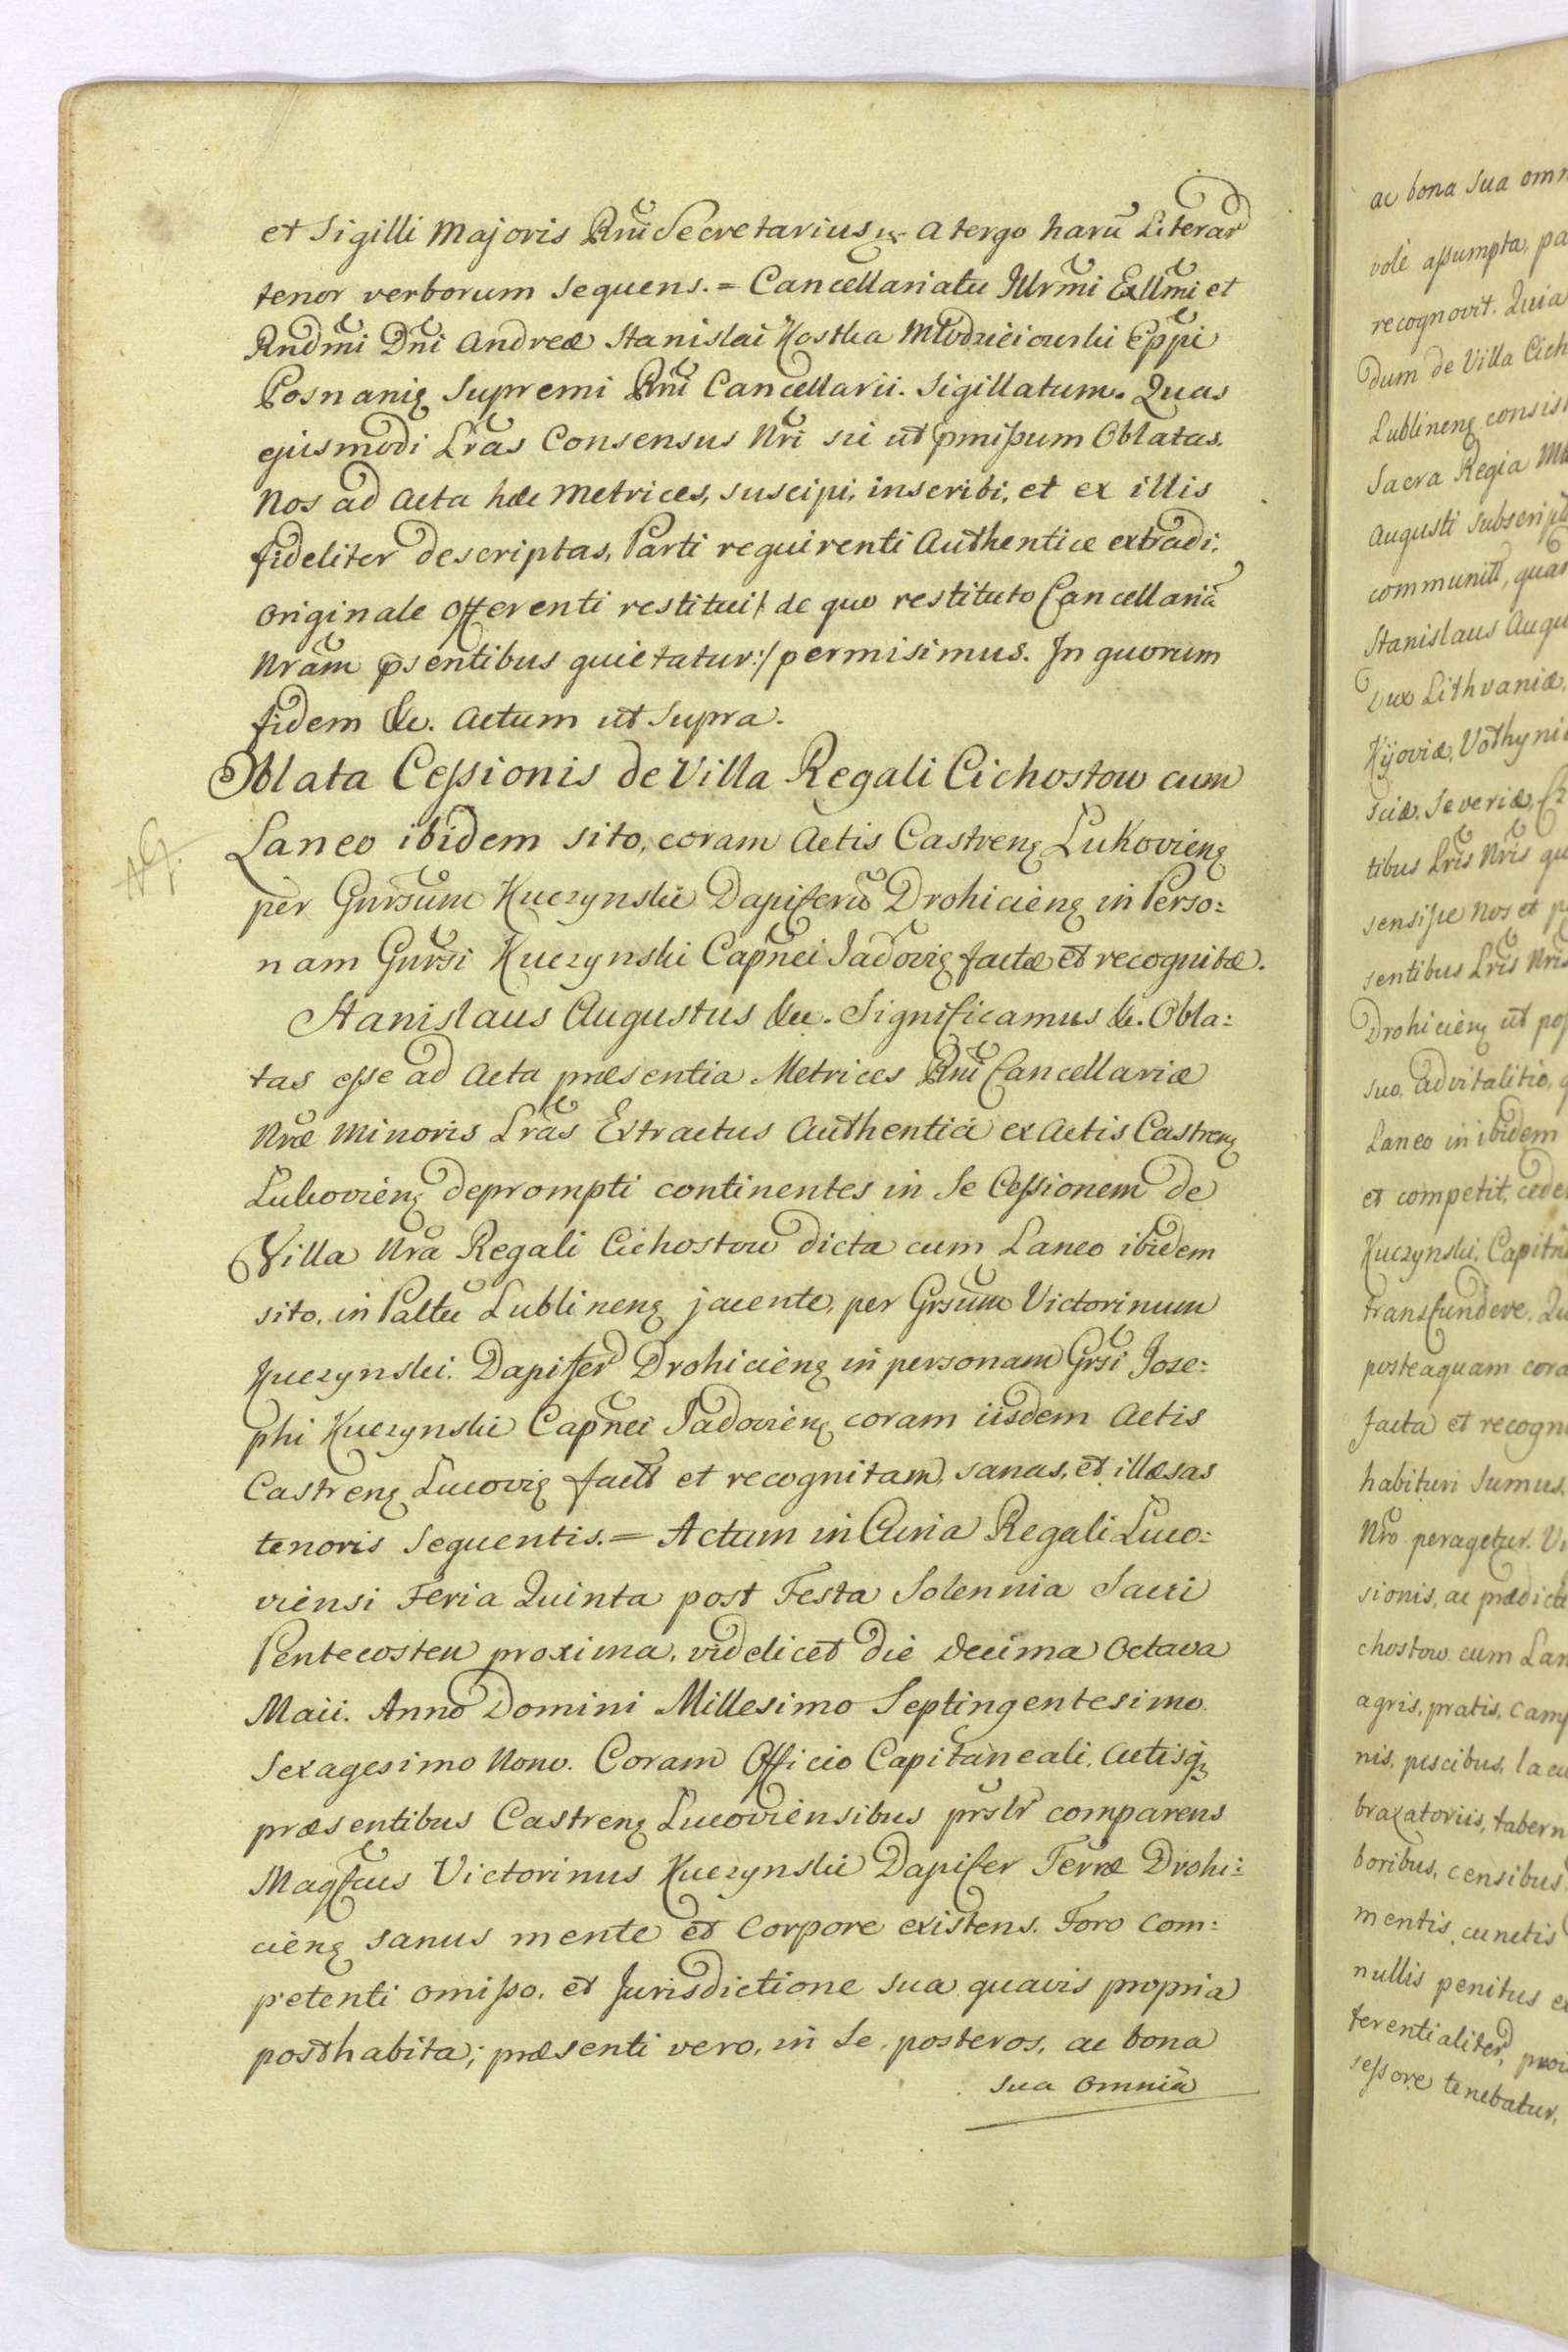 et Sigilli Majoris Rñi Secretarius. A tergo harũ Literar
tenor verborum sequens. = Cancellariatu Illrm̃i Exllm̃i et
Rndm̃i Dñi Andreæ Stanislai Kostka Młodzieiowski Epp̃i
Posnanię Supremi Rñi Cancellarii. Sigillatum. Quas
ejusmodi Lr̃as Consensus Nr̃i sii ut pmissum Oblatas.
Nos ad Acta hæc Metrices, suscipi, inscribi, et ex illis
fideliter descriptas, Parti requirenti Authentice extradi,
Originale Offerenti restitui /: de quo restituto Cancellariã
Nr̃am p̃sentibus quietatur :/ permisimus. In quorum
fidem &c. Actum ut Supra.
Oblata Cessionis de Villa Regali Cichostow cum
Laneo ibidem sito, coram Actis Castreng Lukovieng
per Gnr̃sum Kuczynski Dapiferũ Drohicieng in Perso:
nam Gnr̃si Kuczynski Capñei Jadovię factæ et recognitæ.
Stanislaus Augustus &c. Significamus &c. Obla:
tas esse ad Acta præsentia Metrices Rñi Cancellariæ
Nræ Minoris Lr̃as Extractus Authentici ex Actis Castreng
Lukovieng deprompti continentes in Se Cessionem de
Villa Nr̃a Regali Cichostow dicta cum Laneo ibidem
sito, in Paltu Lublineng jacente, per Grsum Victorinum
Kuczynski. Dapifer Drohicieng in personam Grsi Jose:
phi Kuczynski Capñei Jadovieng coram iisdem Actis
Castreng Lucovię fact et recognitam, sanas, et illæsas
tenoris sequentis. = Actum in Curia Regali Luco:
viensi Feria Quinta post Festa Solennia Sacri
Pentecosten proxima, videlicet die Decima Octava
Maii. Anno Domini Millesimo Septingentesimo
Sexagesimo Nono. Coram Officio Capitaneali, Actisq3
præsentibus Castreng Lucoviensibus prslr comparens
Magfcus Victorinus Kuczynski Dapifer Terræ Drohi:
cieng sanus mente et Corpore existens. Foro Com:
petenti omisso, et Jurisdictione sua quavis propria
posthabita; præsenti vero, in Se, posteros, ac bona
sua omnia
ac bona sua
assumpta,
recognovit. Quia
dum de Villa
Lublineng
Sacra Regia
Augusti
Stanislaus
Dux Lithvaniæ,
Kijoviæ,
sciæ, Severiæ,
tibus Lr̃is Nr̃is
sensisse Nos et
sentibus Lr̃is
Drohicieng ut
suo, advitalitio,
Laneo in ibidem
et competit,
Kuczynski,
transfundere,
posteaquam
facta et
habituri sumus,
Nr̃o peragetur.
sionis, ac
chostow cum
agris, pratis,
nis, piscibus,
brazatoriis,
boribus, censibus
mentis, cunctis
nullis penitus
terentialiter,
sessore tenebatur,